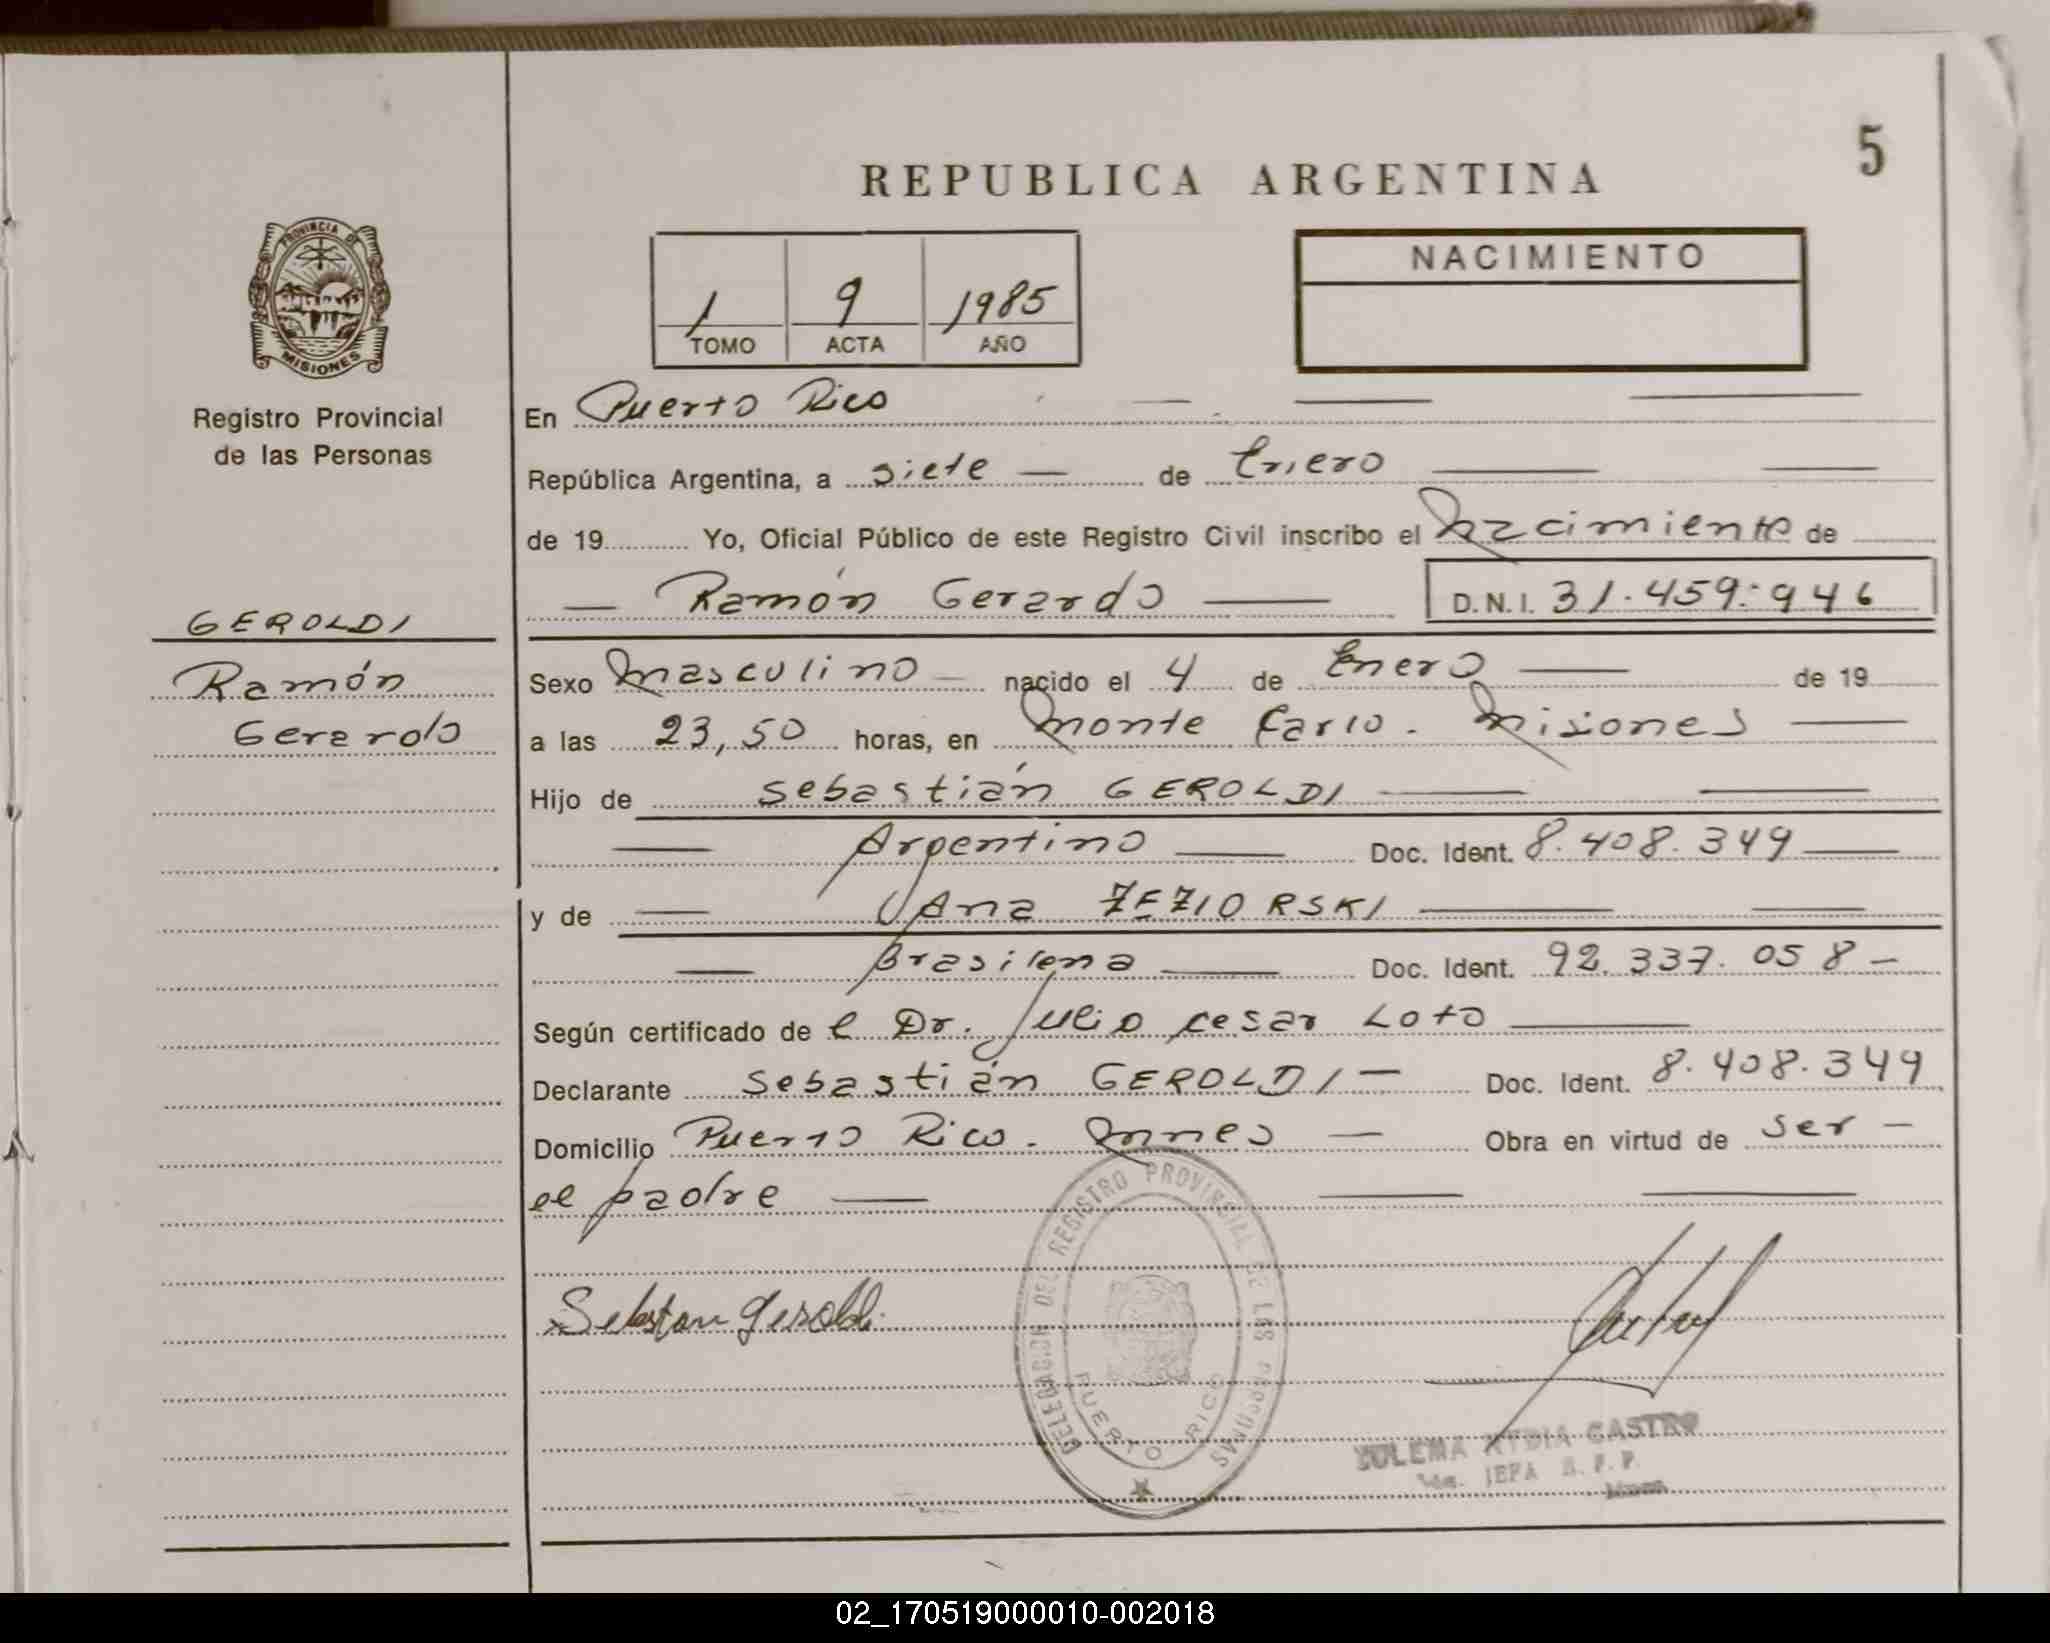 5
REPUBLICA ARGENTINA
PROVINCIA DE
MISIONES
Registro Provincial
de las Personas
GEROLDI
Ramón
Gerardo
1 9 1985
TOMO ACTA AÑO
NACIMIENTO
En Puerto Rico
República Argentina, a siete de Enero
de 19 Yo, Oficial Público de este Registro Civil inscribo el Nacimiento de
Ramón Gerardo D.N.I. 31.459.946
Sexo Masculino nacido el 4 de Enero de 19
a las 23,50 horas, en Monte Carlo. Misiones
Hijo de Sebastián GEROLDI
Argentino Doc. Ident. 8.408.349
y de Ana ZEZIORSKI
Brasilena Doc. Ident. 92.337.058
Según certificado de l Dr. Julio Cesar Loto
Declarante Sebastián GEROLDI Doc. Ident. 8.408.349
Domicilio Puerto Rico. Mnes Obra en virtud de ser
el padre
Sebastian Geroldi
DELEGACION DEL REGISTRO PROVINCIAL DE LAS PERSONAS
PUERTO RICO
ZULEMA NYDIA CASTRO
JEFA R. P. P.
02_170519000010-002018